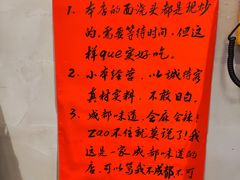 1、本店的面浇头都是现炒
的，需要等待时间，但这
样que实好吃。
2、小本经营，以诚待客
真材实料，不敢自夸。
3、成都味道，会麻会辣！
zao不住就莫说了！我
这是一家成都味道的
店，可以骂我不成都不可